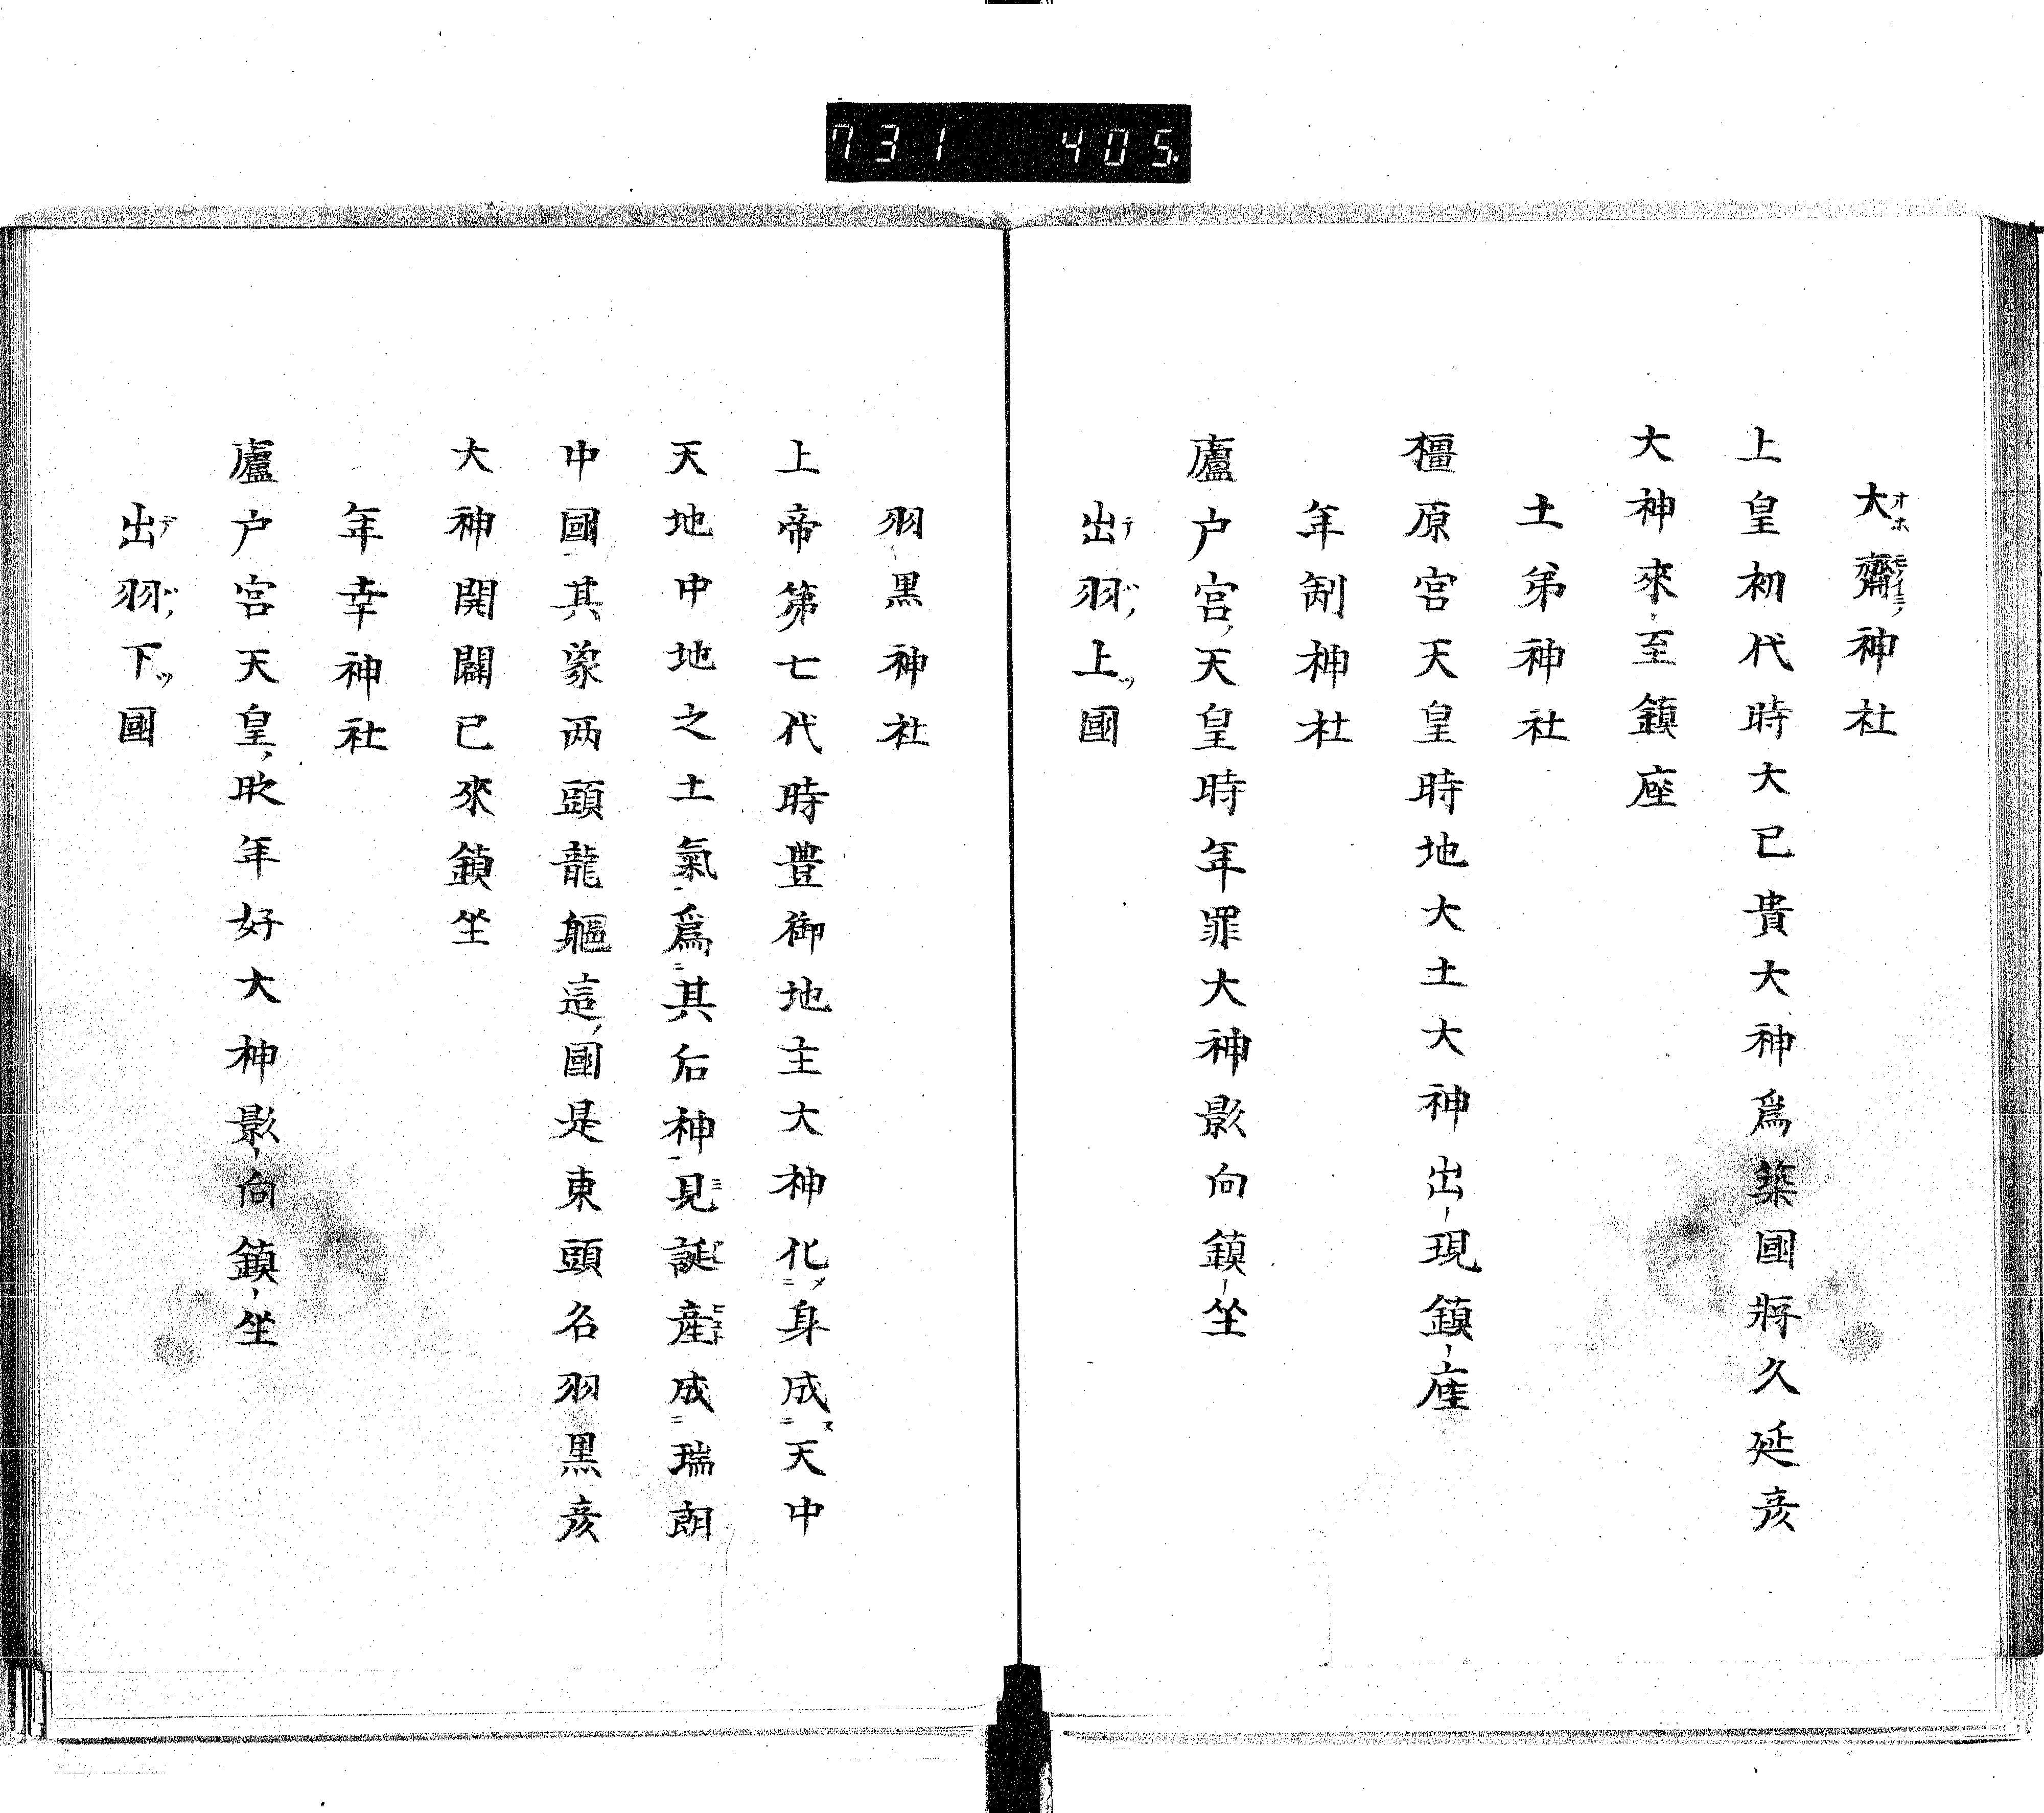 731 405
大齋神社
上皇初代時大己貴大神爲築國將久延彦
大神來至鎮座
土弟神社
橿原宮天皇時地大土大神出現鎮座
年制神社
廬戸宮天皇時年罪大神影向鎮坐
出羽上國
羽黒神社
上帝第七代時豊御地主大神化身成天中
天地中地之土氣爲其后神見誕産成瑞朗
中國其象两頭龍軀這國是東頭名羽黒彦
大神開闢已來鎮坐
年幸神社
廬戸宮天皇年好大神影向鎮坐
出羽下國